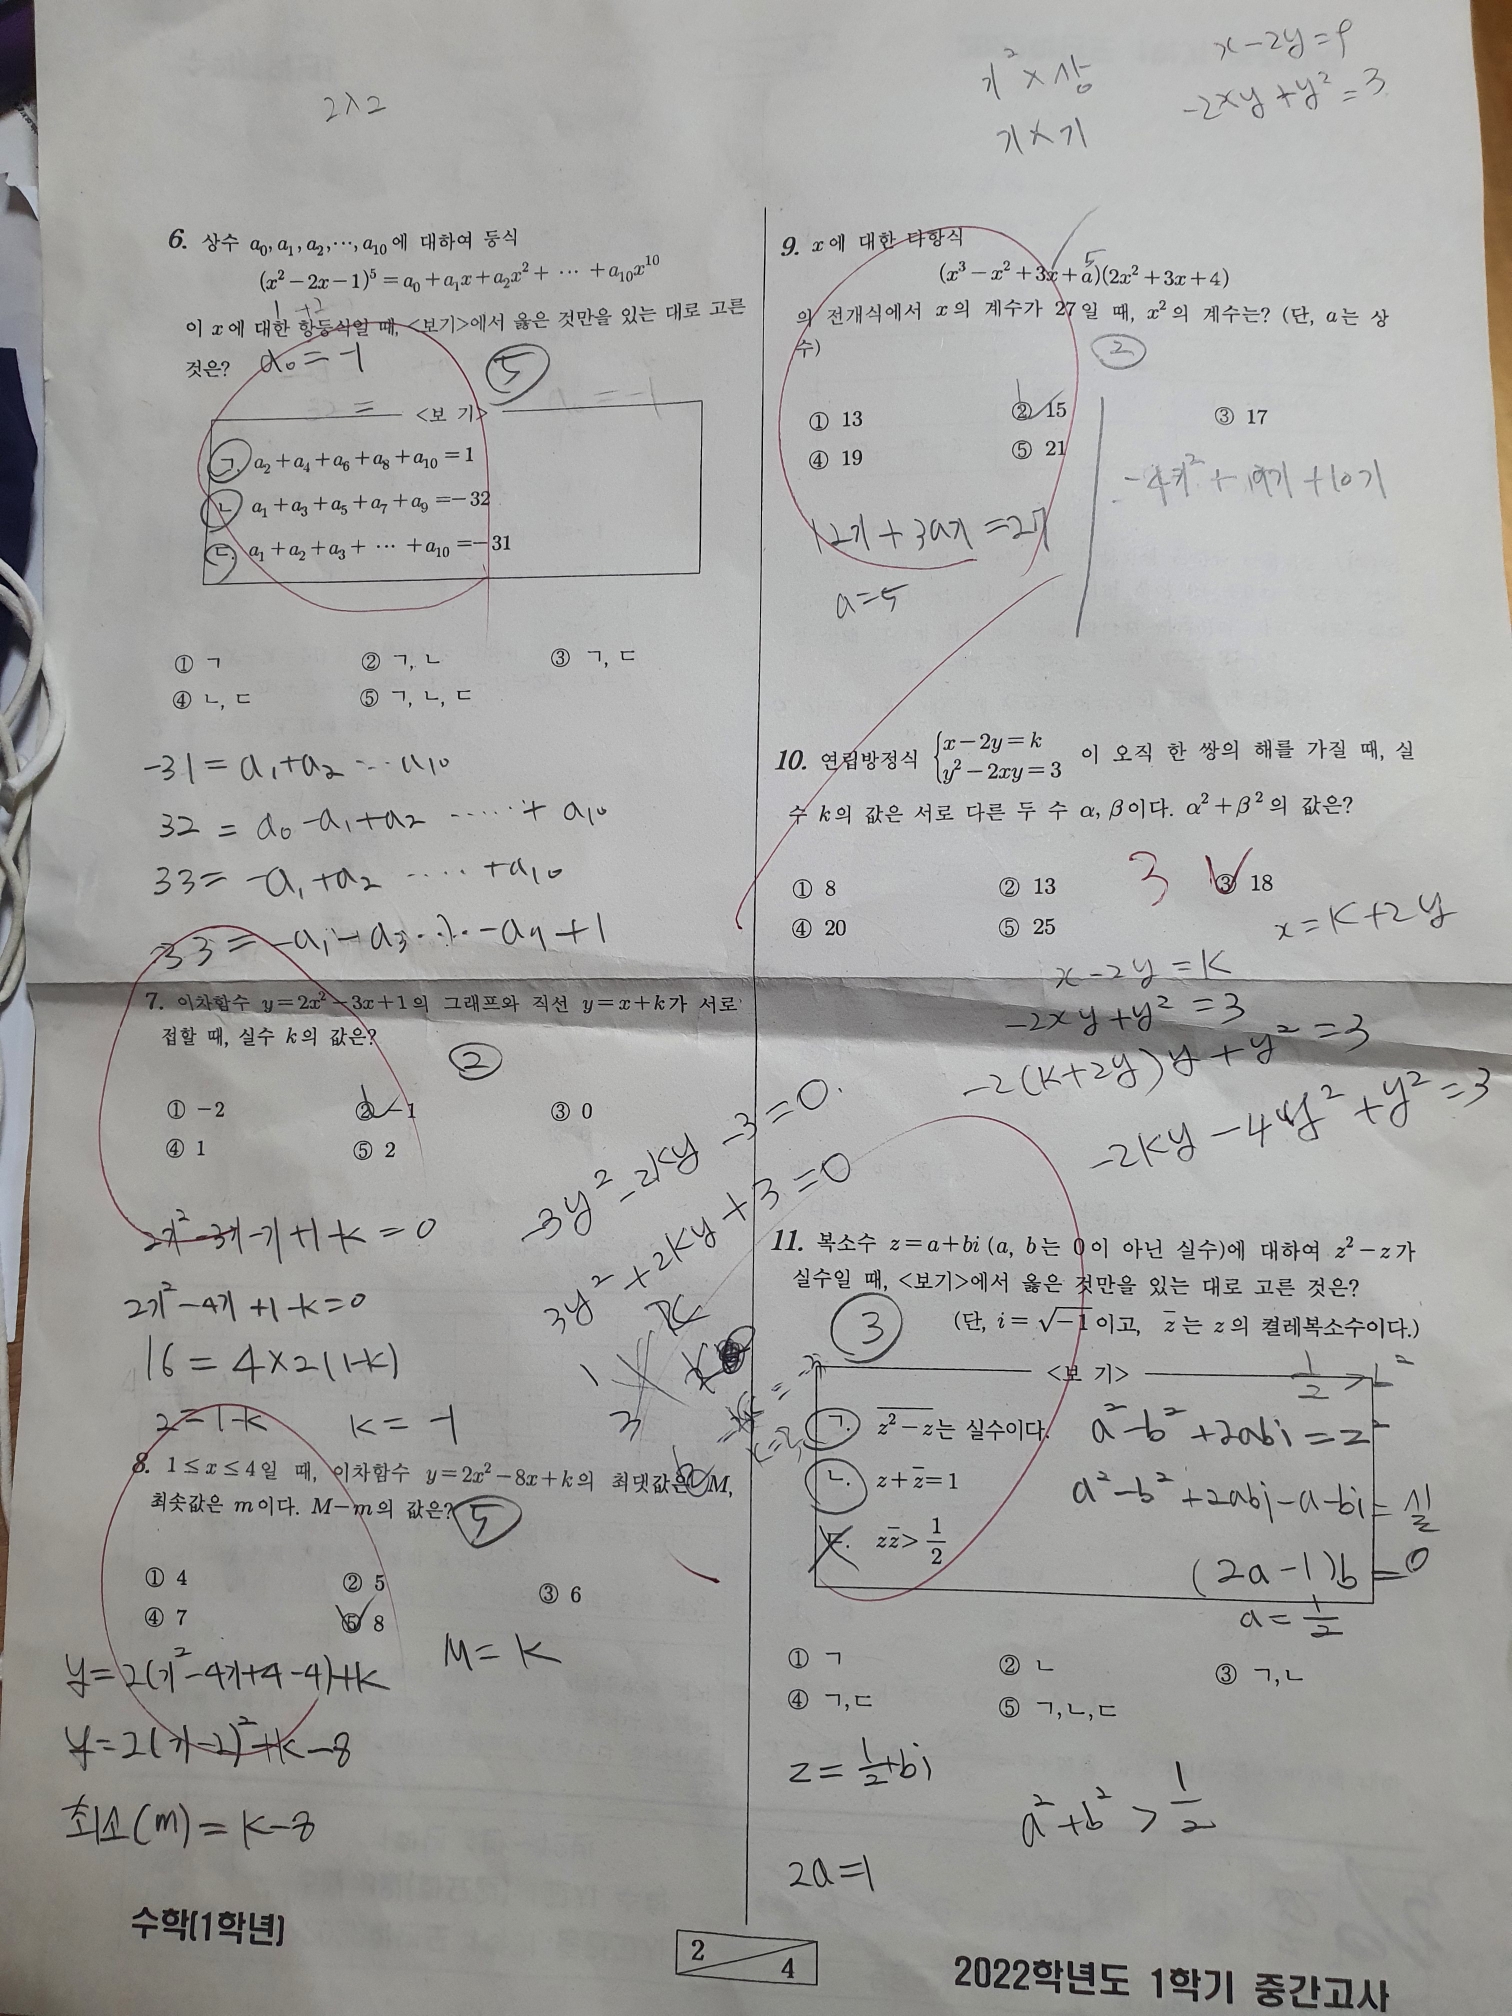 2x2
x² × 상
x × x
x-2y=
-2xy+y²=3
6. 상수 a₀, a₁, a₂, ⋯, a₁₀에 대하여 등식
(x²-2x-1)⁵ = a₀+a₁x+a₂x²+ ⋯ +a₁₀x¹⁰
이 x에 대한 항등식일 때, <보기>에서 옳은 것만을 있는 대로 고른
것은?
a₀=-1
⑤
<보 기>
ㄱ. a₂+a₄+a₆+a₈+a₁₀=1
ㄴ. a₁+a₃+a₅+a₇+a₉=-32
ㄷ. a₁+a₂+a₃+ ⋯ +a₁₀=-31
① ㄱ ② ㄱ, ㄴ ③ ㄱ, ㄷ
④ ㄴ, ㄷ ⑤ ㄱ, ㄴ, ㄷ
-31=a₁+a₂ ⋯ a₁₀
32=a₀-a₁+a₂ ⋯⋯ + a₁₀
33=-a₁+a₂ ⋯⋯ +a₁₀
33=-a₁-a₃ ⋯ -a₉+1
7. 이차함수 y=2x²-3x+1의 그래프와 직선 y=x+k가 서로
접할 때, 실수 k의 값은?
②
① -2 ② -1 ③ 0
④ 1 ⑤ 2
2x²-3x-x+1-k=0
2x²-4x+1-k=0
16=4×2(1-k)
2=1-k k=-1
8. 1≤x≤4일 때, 이차함수 y=2x²-8x+k의 최댓값은 M,
최솟값은 m이다. M-m의 값은?
⑤
① 4 ② 5 ③ 6
④ 7 ⑤ 8
M=k
y=2(x²-4x+4-4)+k
y=2(x-2)²+k-8
최소(m)=k-8
9. x에 대한 다항식
5
(x³-x²+3x+a)(2x²+3x+4)
의 전개식에서 x의 계수가 27일 때, x²의 계수는? (단, a는 상
수)
②
① 13 ② 15 ③ 17
④ 19 ⑤ 21
12x+3ax=27
a=5
10. 연립방정식 {x-2y=k
y²-2xy=3 이 오직 한 쌍의 해를 가질 때, 실
수 k의 값은 서로 다른 두 수 α, β이다. α²+β²의 값은?
3
① 8 ② 13 ③ 18
④ 20 ⑤ 25
x=k+2y
x-2y=k
-2xy+y²=3
-2(k+2y)y+y²=3
-2ky-4y²+y²=3
-3y²-2ky-3=0
3y²+2ky+3=0
11. 복소수 z=a+bi (a, b는 0이 아닌 실수)에 대하여 z²-z가
실수일 때, <보기>에서 옳은 것만을 있는 대로 고른 것은?
(단, i=√-1이고, z̅는 z의 켤레복소수이다.)
③
<보 기>
ㄱ. z²-z는 실수이다.
ㄴ. z+z̅=1
ㄷ. zz̅>1/2
a²-b²+2abi=z²
a²-b²+2abi-a-bi=실
(2a-1)b=0
a=1/2
① ㄱ ② ㄴ ③ ㄱ,ㄴ
④ ㄱ,ㄷ ⑤ ㄱ,ㄴ,ㄷ
z=1/2+bi
a²+b²>1/2
2a=1
수학(1학년)
2
4
2022학년도 1학기 중간고사